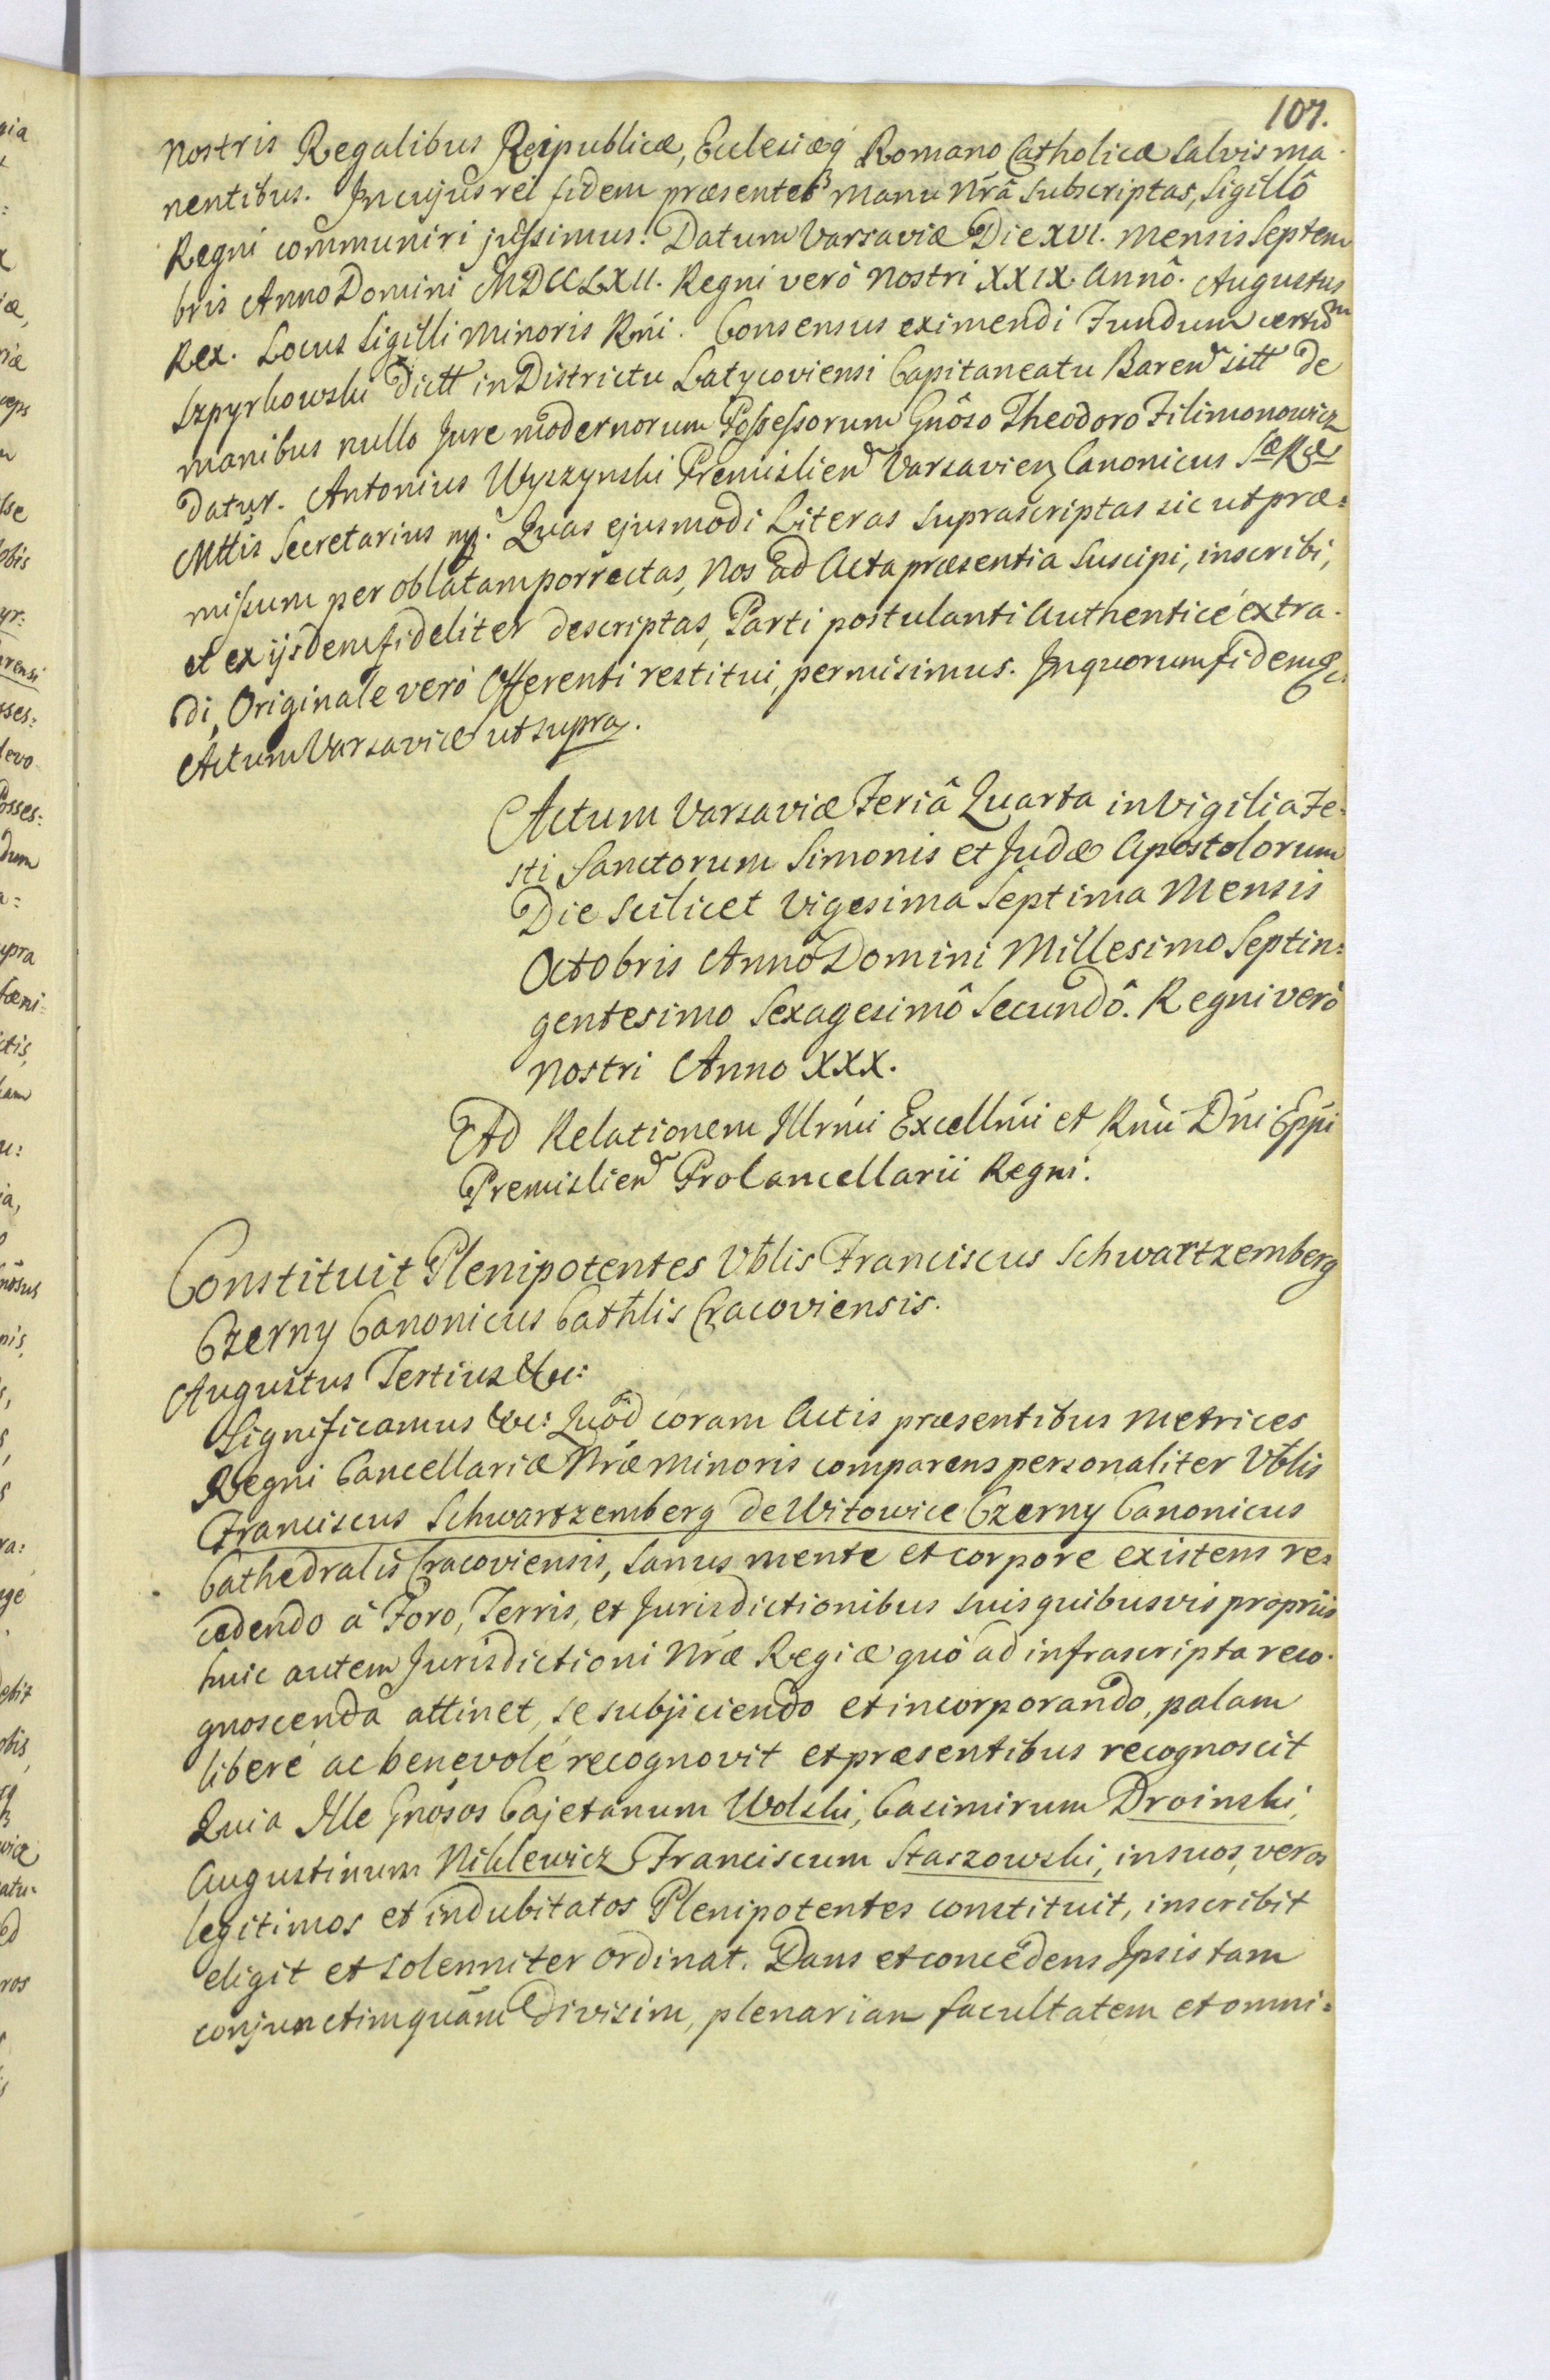 107.
nostris Regalibus Reipublicæ, Ecclesiæq Romano Catholicæ salvis ma-
nentibus. In cujus rei fidem præsentes manu Nrâ subscriptas, Sigillô
Regni communiri jussimus. Datum Varsaviæ Die XVI. mensis Septem
bris Anno Domini MDCCLXII. Regni verô nostri XXIX. annô. Augustus
Rex. Locus Sigilli minoris Rni. Consensus eximendi Fundum certum
Szpyrkowski dictt in Districtu Latycoviensi Capitaneatu Baren sitt de
manibus nullo Jure modernorum Possessorum Gnôso Theodoro Filimonowicz
datur. Antonius Wyszynski Premislien Varsavien Canonicus Sæ Ræ
Mttis Secretarius mp. Quas ejusmodi Literas suprascriptas sic ut præ=
missum per oblatam porrectas, Nos ad Acta præsentia suscipi, inscribi,
et ex ijsdem fideliter descriptas, Parti postulanti authenticè extra-
di, Originale verò Offerenti restitui, permisimus. In quorum fidem &c
Actum Varsaviæ ut supra.
Actum Varsaviæ Feriâ Quarta in Vigilia Fe-
sti Sanctorum Simonis et Judæ Apostolorum
Die scilicet Vigesima Septima Mensis
Octobris Annô Domini Millesimo Septin=
gentesimo Sexagesimô Secundô. Regni verò
nostri Anno XXX.
Ad Relationem Illrmi Excellmi et Rmi Dni Eppi
Premislien ProCancellarii Regni.
Constituit Plenipotentes Vblis Franciscus Schwartzemberg
Czerny Canonicus Cathlis Cracoviensis.
Augustus Tertius &c:
Significamus &c: Quôd coram Actis præsentibus Metrices
Regni Cancellariæ Nræ minoris comparens personaliter Vblis
Franciscus Schwartzemberg de Witowice Czerny Canonicus
Cathedralis Cracoviensis, sanus mente et corpore existens re=
cedendo â Foro, Terris, et Jurisdictionibus suis quibusvis propriis
huic autem Jurisdictioni Nræ Regiæ quò ad infrascripta reco-
gnoscenda attinet, se subjiciendo et incorporando, palam
liberè ac benevolè recognovit et præsentibus recognoscit
Quia Ille Gnosos Cajetanum Wolski, Casimirum Droinski,
Augustinum Niklewicz Franciscum Staszowski, in suos, veros
legitimos et indubitatos Plenipotentes constituit, inscribit
eligit et solenniter ordinat. Dans et concedens Ipsis tam
conjunctim quàm divisim, plenariam facultatem et omni=